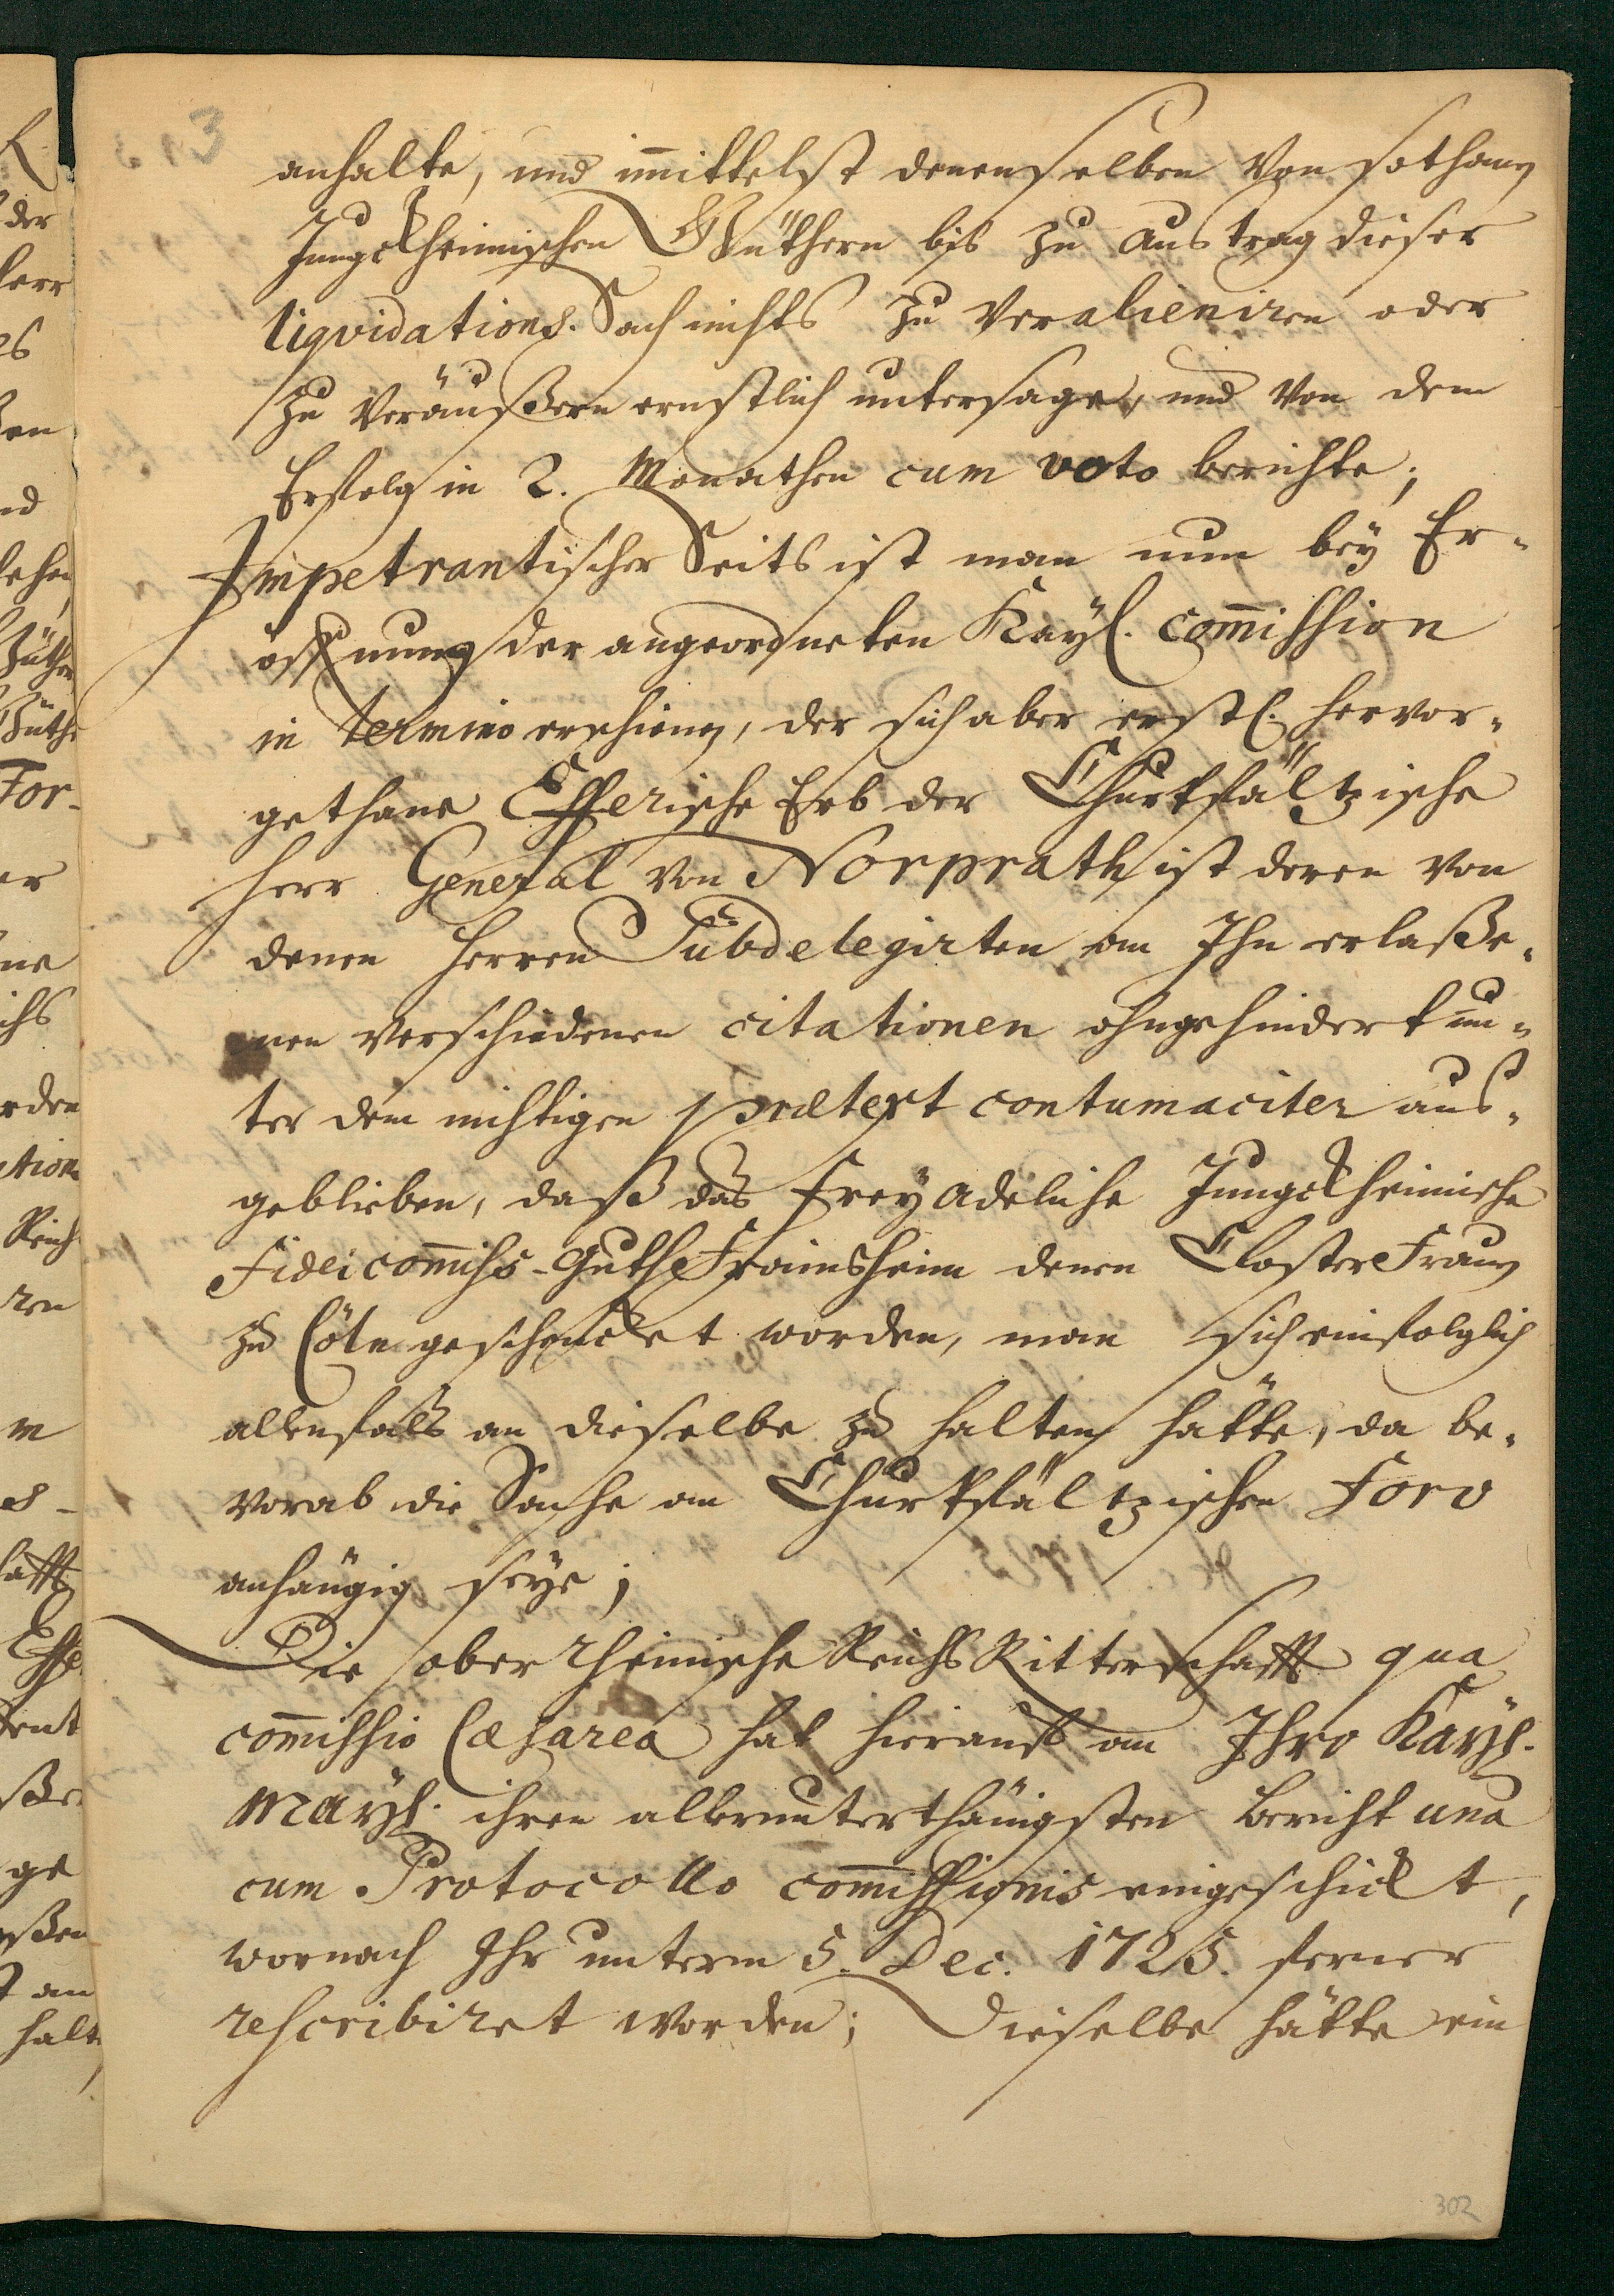 3
anhalte, und im̄ittelst denenselben von sothanen
Jungckheimischen Güthern bis zu austrag dieser
liqvidations-Sach nichts zu veralieniren oder
zu veräußern ernstlich untersage, und von dem
Erfolg in 2. Monathen cum voto berichte;
Impetrantischer Seits ist man nun bey Er-
öffnung der angeordneten Kayl. com̄ission
in termino erschienen, der sich aber erstl. hervor-
gethane Efferische Erb der Churpfältzische
Herr General von Norprath ist deren von
denen Herren Subdelegirten an Ihn erlaße-
nen verschiedenen citationen ohngehindert un-
ter dem nichtigen prætext contumaciter aus-
geblieben, daß das freyadeliche Jungckheimische
Fideicom̄iss-Guth Frainsheim denen Closter Frauen
zu Cöln geschencket worden, man sich einfolglich
allenfals an dieselbe zu halten hätte, da be-
vorab die Sache am Churpfältzischen Foro
anhängig seye;
Die oberrheinische Reichs Ritterschafft qua
com̄issio Cæsarea hat hierauf an Ihro Kayl.
Mayt. ihren allerunterthänigsten Bericht una
cum Protocollo com̄issionis eingeschickt,
wornach Ihr unterm 5. Dec. 1725. ferner
rescribiret worden; Dieselbe hätte ein
302